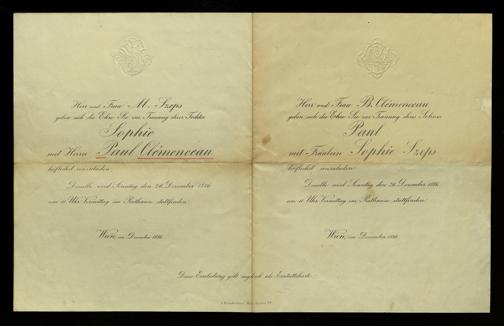 Herr und Frau M. Szeps
geben sich die Ehre Sie zur Trauung ihrer Tochter
Sophie
mit Herrn Paul Clémenceau
höflichst einzuladen.
Dieselbe wird Sonntag den 26. December 1886
um 11 Uhr Vormittag im Rathhause stattfinden.
Wien, im December 1886.
Herr und Frau B. Clémenceau
geben sich die Ehre Sie zur Trauung ihres Sohnes
Paul
mit Fräulein Sophie Szeps
höflichst einzuladen.
Dieselbe wird Sonntag den 26. December 1886
um 11 Uhr Vormittag im Rathhause stattfinden.
Wien, im December 1886.
Diese Einladung gilt zugleich als Eintrittskarte.